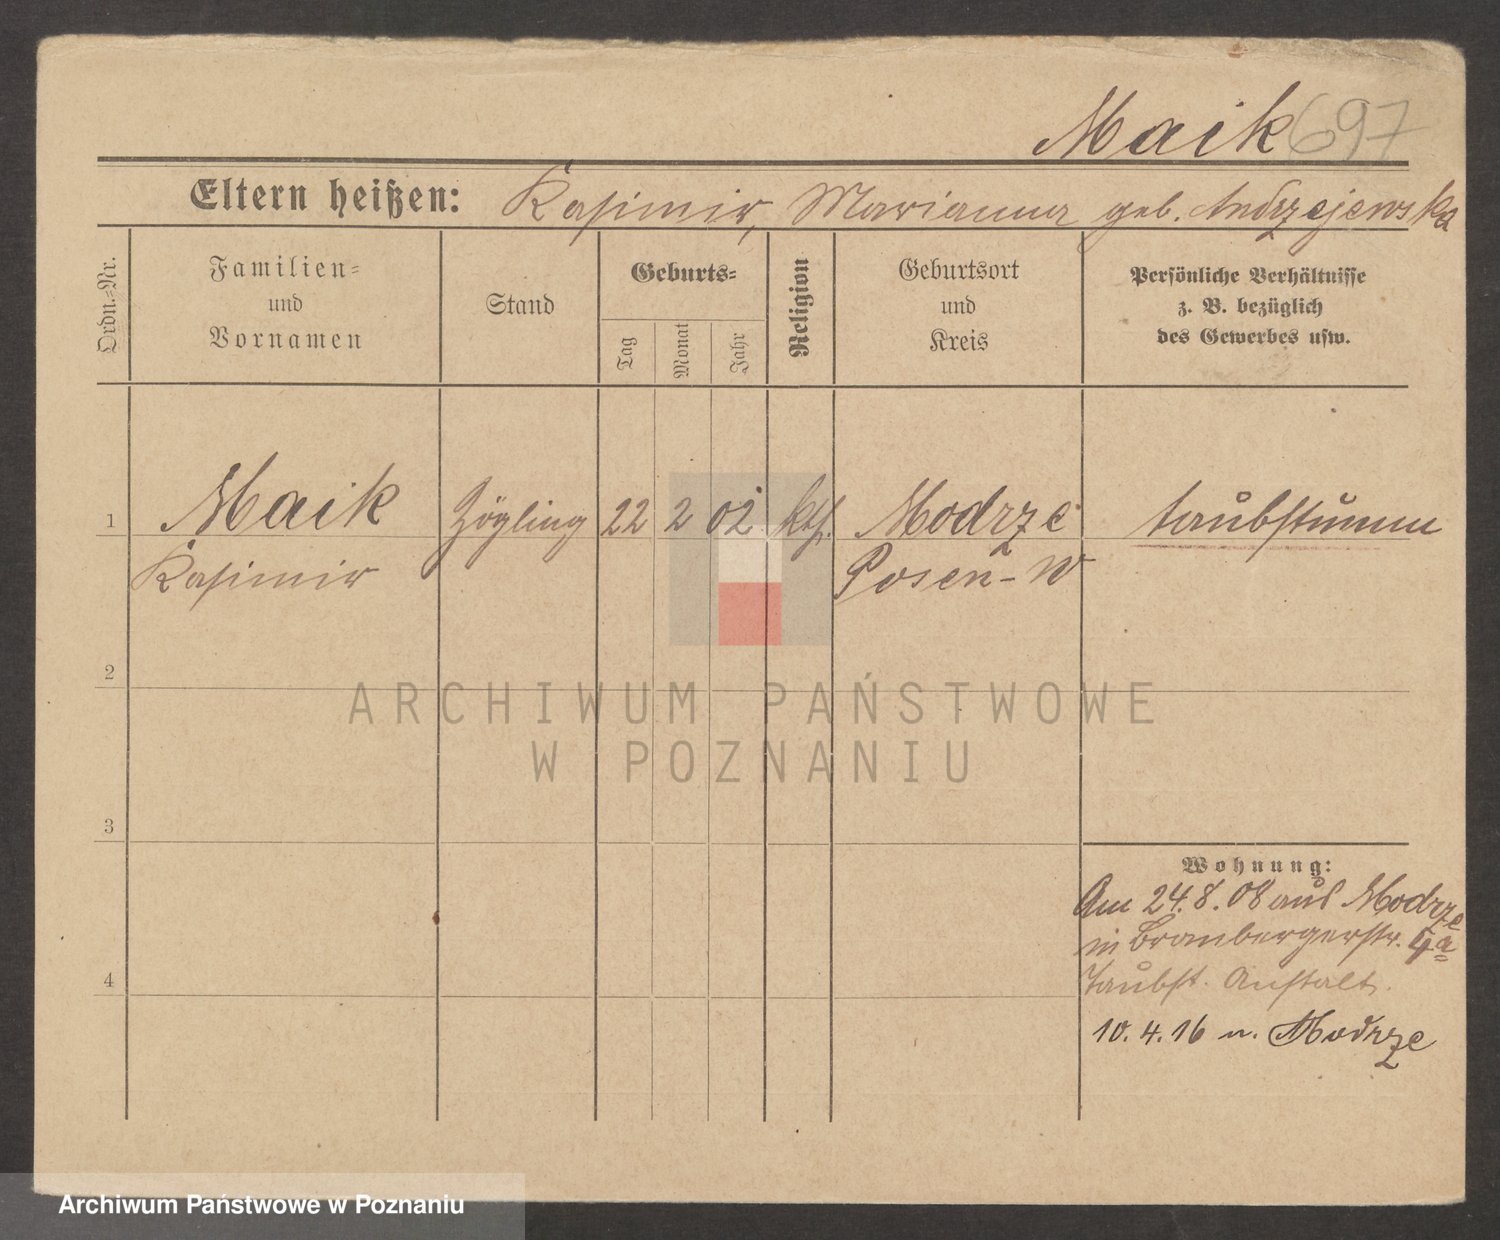 Maik 697
Eltern heißen: Kasimir, Marianna geb. Andrzejewska
Ordn.=Nr.
Familien=
und
Vornamen
Stand
Geburts=
Tag
Monat
Jahr
Religion
Geburtsort
und
Kreis
Persönliche Verhältnisse
z. B. bezüglich
des Gewerbes usw.
1 Maik Zögling 22 2 02 kth. Modrze taubstumm
Kasimir Posen-W
2
ARCHIWUM PAŃSTWOWE
W POZNANIU
3
Wohnung:
Am 24.8.08 aus Modrze
in Brombergerstr. 4a
Taubst. Anstalt.
4
10.4.16 n. Modrze
Archiwum Państwowe w Poznaniu